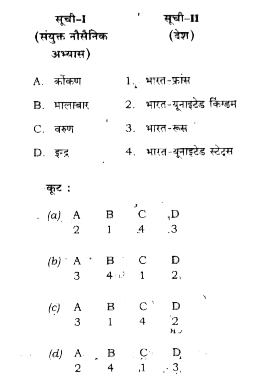 सूची-I सूची-II
(संयुक्त नौसैनिक (देश)
अभ्यास)
A. कोंकण 1. भारत-फ्रांस
B. मालाबार 2. भारत-यूनाइटेड किंग्डम
C. वरुण 3. भारत-रूस
D. इन्द्र 4. भारत-यूनाइटेड स्टेट्स
कूट :
(a) A B C D
2 1 4 3
(b) A B C D
3 4 1 2
(c) A B C D
3 1 4 2
(d) A B C D
2 4 1 3